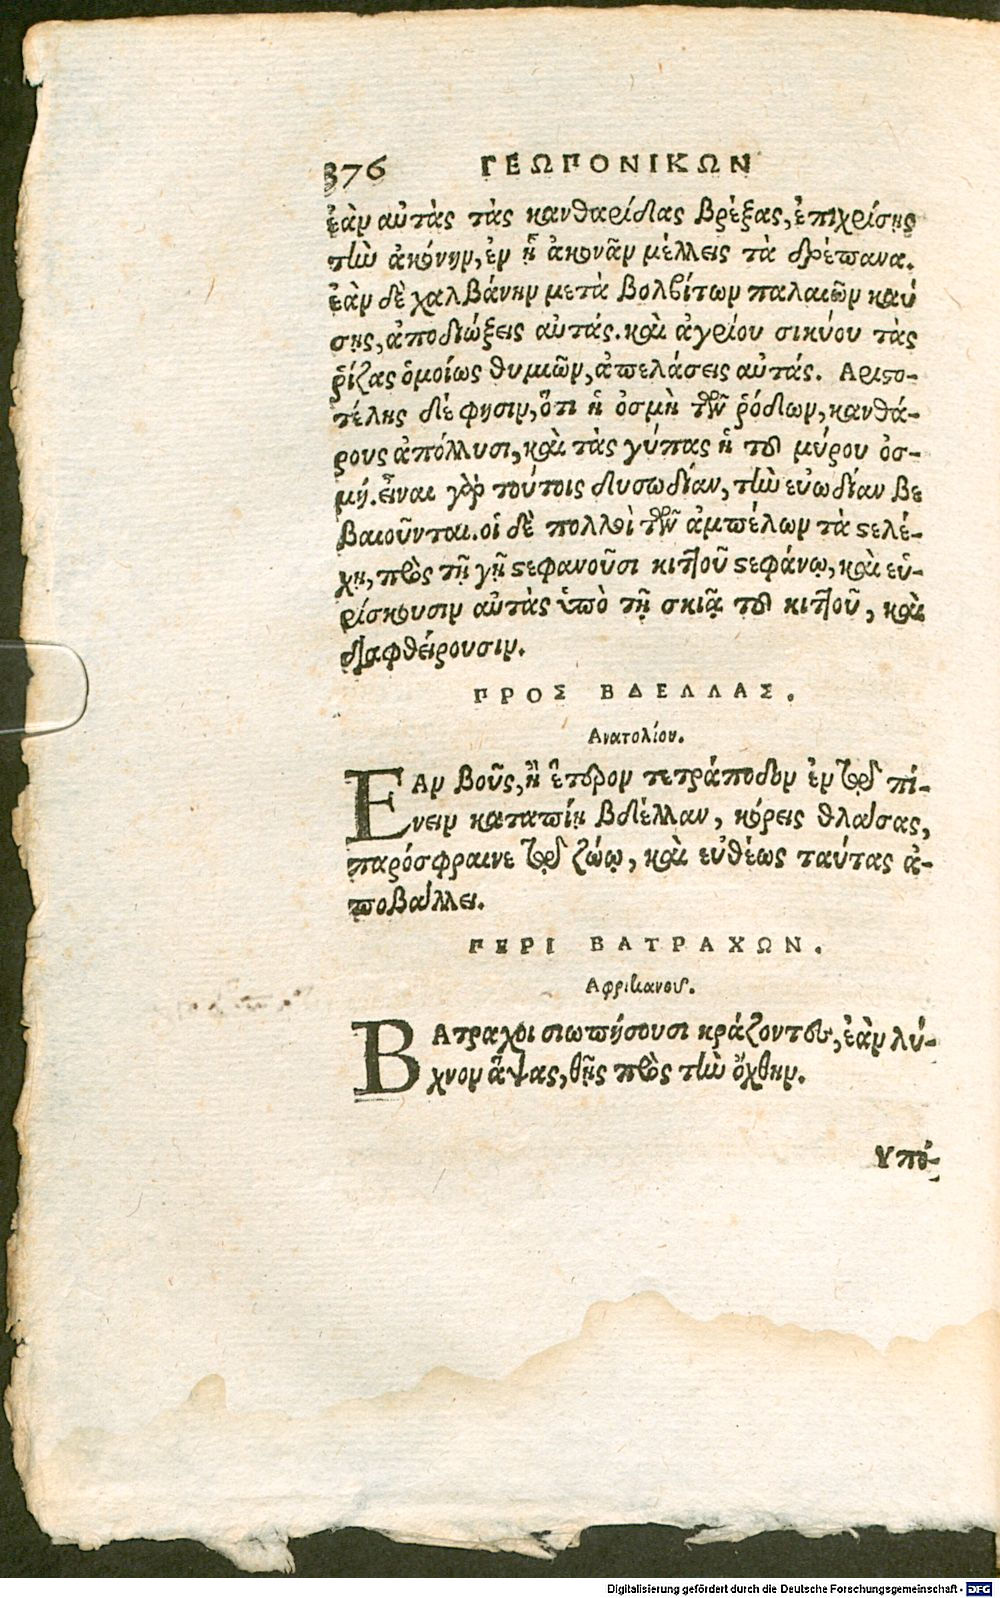 376 ΓΕΩΠΟΝΙΚΩΝ
ἐὰν αὐτὰς τὰς κανθαρίδας βρέξας, ἐπιχρίσῃς
τὴν ἀκόνην, ἐν ᾗ ἀκονᾶν μέλλεις τὰ δρέπανα.
ἐὰν δὲ χαλβάνην μετὰ βολβίτων παλαιῶν καύ
σῃς, ἀποδιώξεις αὐτάς. καὶ ἀγρίου σικύου τὰς
ῥίζας ὁμοίως θυμιῶν, ἀπελάσεις αὐτάς. Αριστο-
τέλης δέ φησιν, ὅτι ἡ ὀσμὴ τῶν ῥόδων, κανθά-
ρους ἀπόλλυσι, καὶ τὰς γύπας ἡ τοῦ μύρου ὀσ-
μή. εἶναι γὰρ τούτοις δυσωδίαν, τὴν εὐωδίαν βε
βαιοῦνται. οἱ δὲ πολλοὶ τῶν ἀμπέλων τὰ στελέ-
χη, πρὸς τῇ γῇ στεφανοῦσι κιττοῦ στεφάνῳ, καὶ εὑ-
ρίσκουσιν αὐτὰς ὑπὸ τῇ σκιᾷ τοῦ κιττοῦ, καὶ
διαφθείρουσιν.
ΠΡΟΣ ΒΔΕΛΛΑΣ.
Ανατολίου.
ΕΑν βοῦς, ἢ ἕτερον τετράποδον ἐν τῷ πί-
νειν καταπίῃ βδέλλαν, κόρεις θλάσας,
παρόσφραινε τῷ ζώῳ, καὶ εὐθέως ταύτας ἀ-
ποβάλλει.
ΠΕΡΙ ΒΑΤΡΑΧΩΝ.
Αφρικανοῦ.
ΒΑτραχοι σιωπήσουσι κράζοντες, ἐὰν λύ-
χνον ἅψας, θῇς πρὸς τὴν ὄχθην.
Υπό-
Digitalisierung gefördert durch die Deutsche Forschungsgemeinschaft - DFG